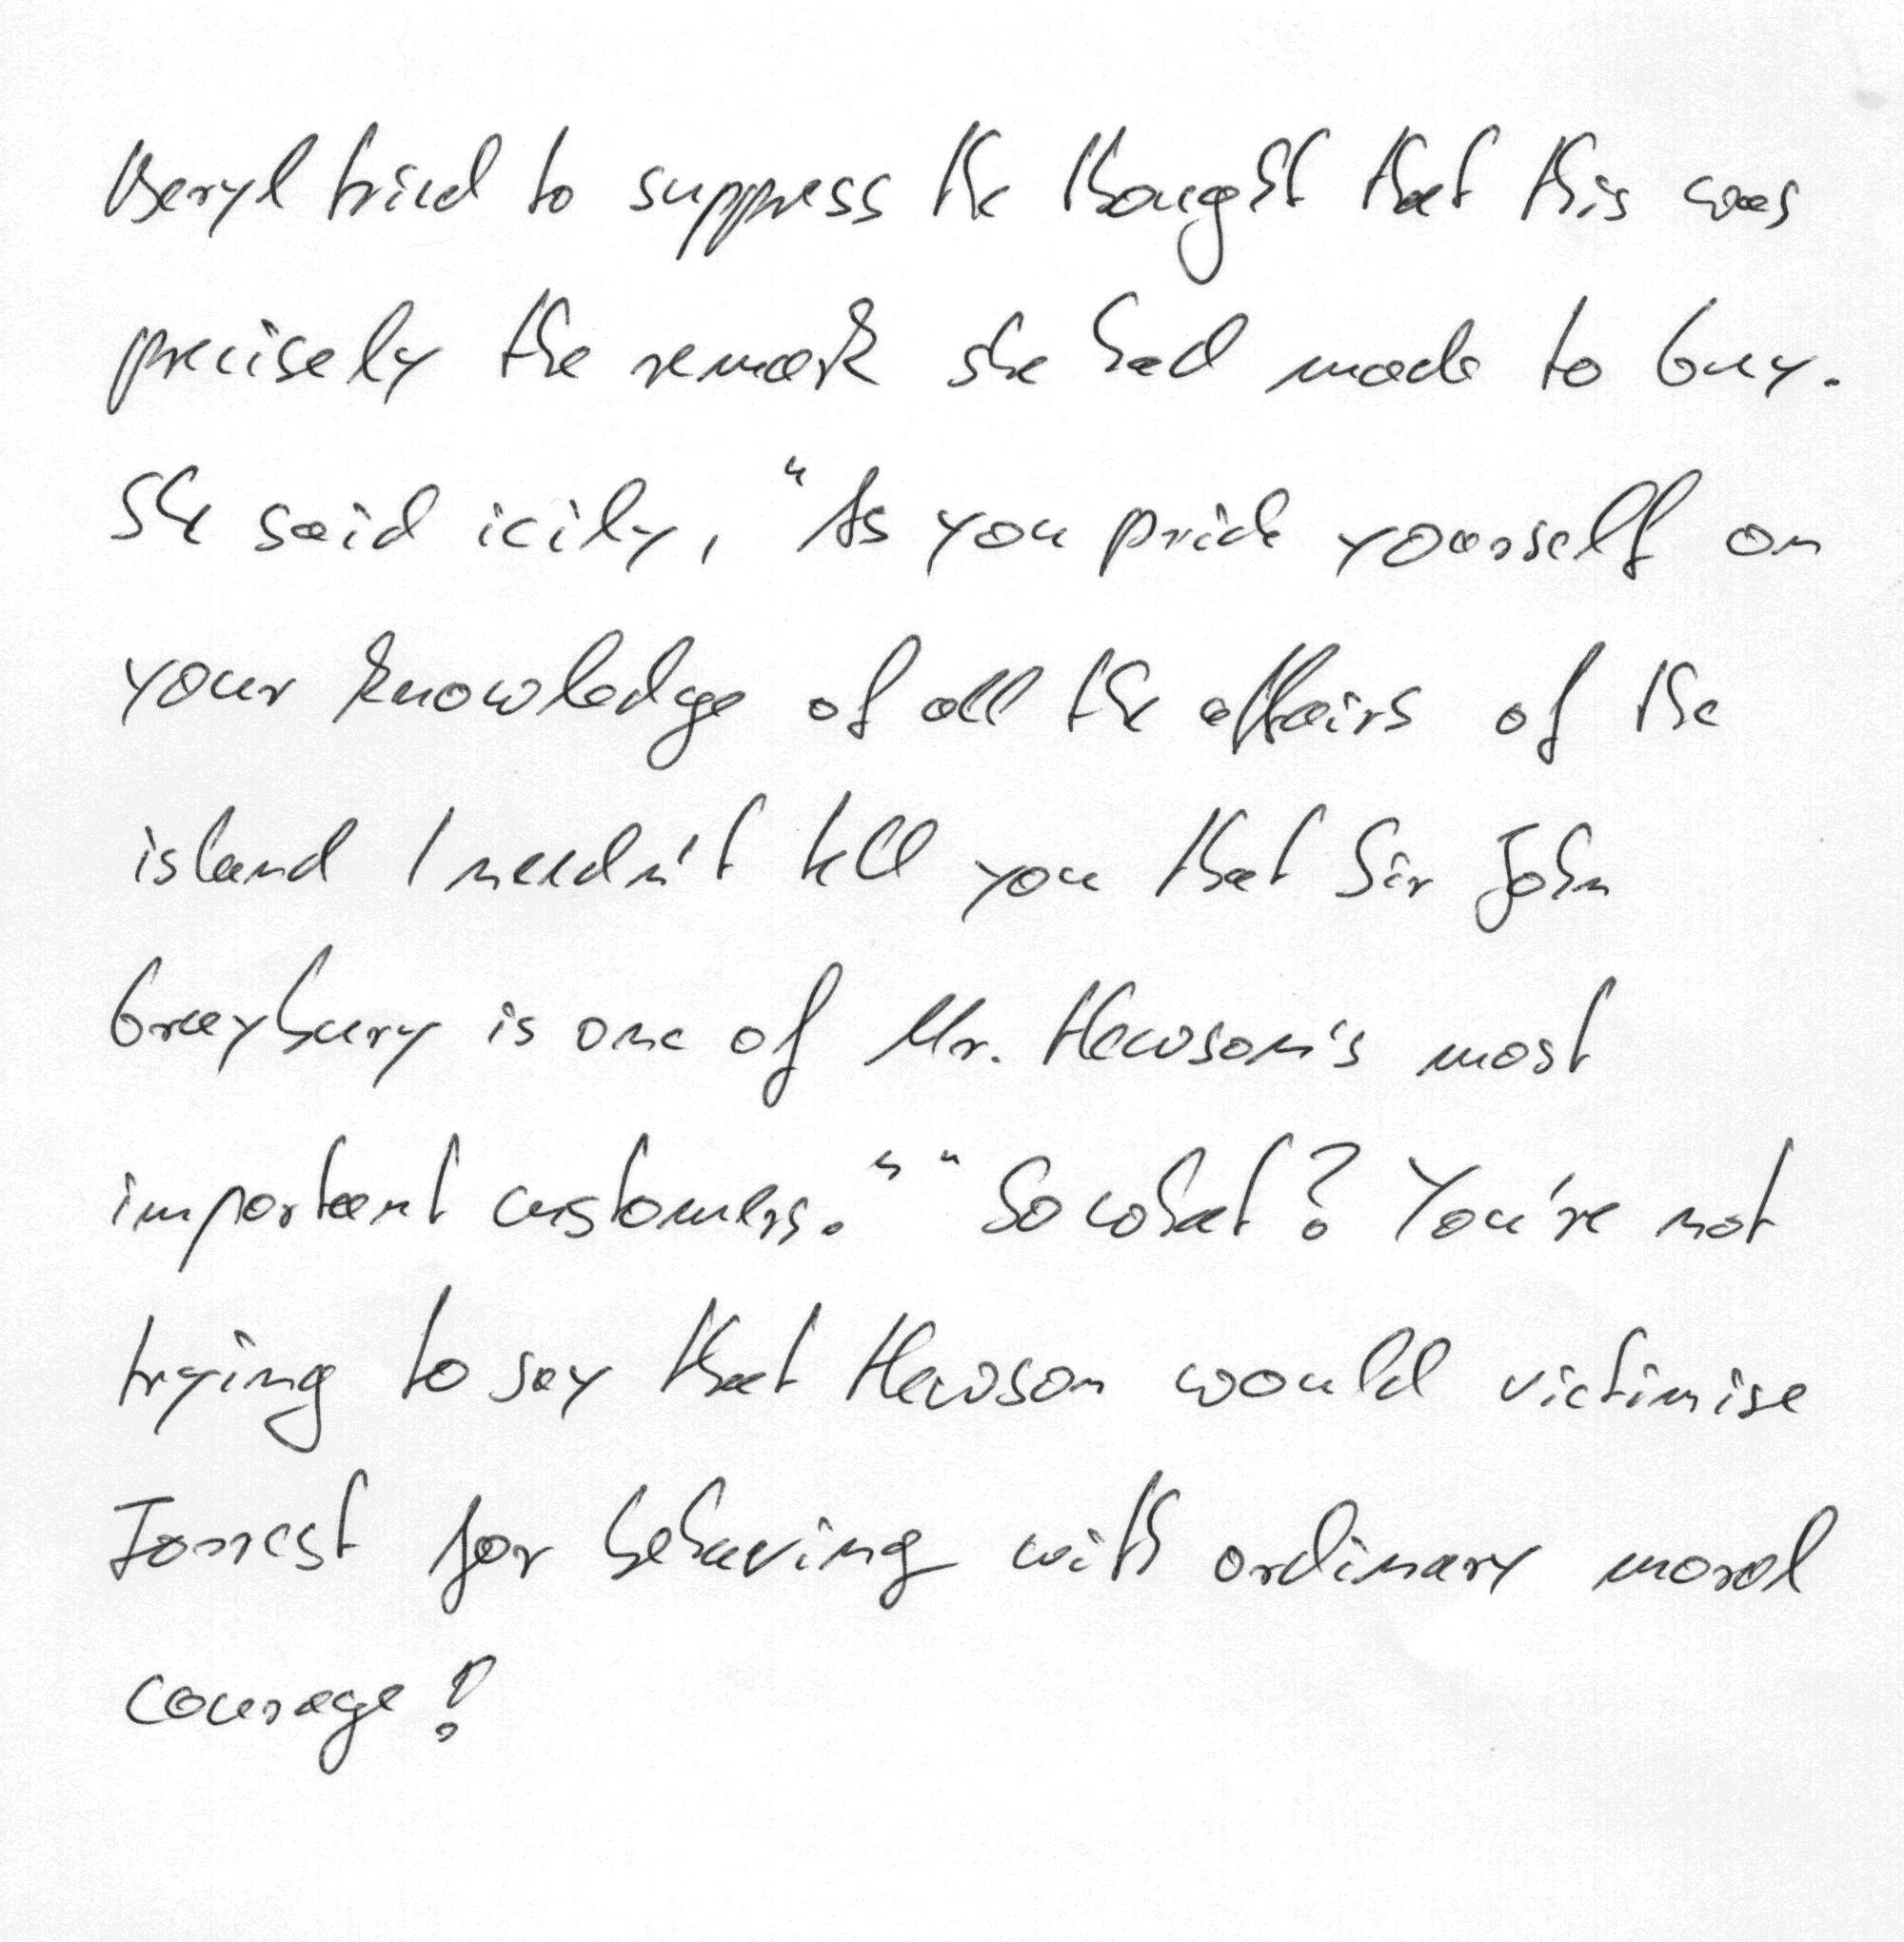 Beryl tried to suppress the thought that this was
precisely the remark she had made to Guy.
She said icily, "As you pride yourself on
your knowledge of all the affairs of the
island I needn't tell you that Sir John
Graybury is one of Mr. Hewson's most
important customers." "So what? You're not
trying to say that Hewson would victimise
Forrest for behaving with ordinary moral
courage!